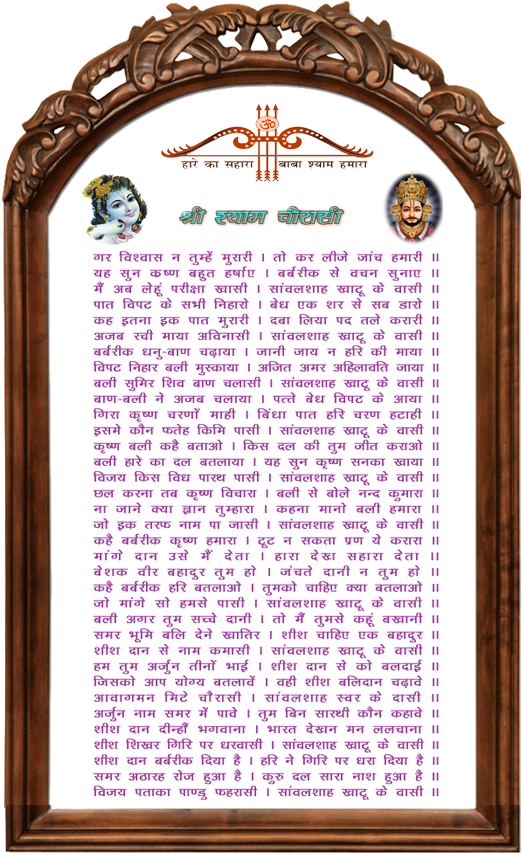 ॐ
हारे का सहारा बाबा श्याम हमारा
श्री श्याम चौरासी
गर विश्वास न तुम्हें मुरारी । तो कर लीजे जांच हमारी ॥
यह सुन कृष्ण बहुत हर्षाए । बर्बरीक से वचन सुनाए ॥
मैं अब लेहूं परीक्षा खासी । सांवलशाह खाटू के वासी ॥
पात विपट के सभी निहारो । बेध एक शर से सब डारो ॥
कह इतना इक पात मुरारी । दबा लिया पद तले करारी ॥
अजब रची माया अविनासी । सांवलशाह खाटू के वासी ॥
बर्बरीक धनु-बाण चढ़ाया । जानी जाय न हरि की माया ॥
विपट निहार बली मुस्काया । अजित अमर अहिलावति जाया ॥
बली सुमिर शिव बाण चलासी । सांवलशाह खाटू के वासी ॥
बाण-बली ने अजब चलाया । पत्ते बेध विपट के आया ॥
गिरा कृष्ण चरणों माही । बिंधा पात हरि चरण हटाही ॥
इसमे कौन फतेह किमि पासी । सांवलशाह खाटू के वासी ॥
कृष्ण बली कहै बताओ । किस दल की तुम जीत कराओ ॥
बली हारे का दल बतलाया । यह सुन कृष्ण सनका खाया ॥
विजय किस विध पारथ पासी । सांवलशाह खाटू के वासी ॥
छल करना तब कृष्ण विचारा । बली से बोले नन्द कुमारा ॥
ना जाने क्या ज्ञान तुम्हारा । कहना मानो बली हमारा ॥
जो इक तरफ नाम पा जासी । सांवलशाह खाटू के वासी ॥
कहै बर्बरीक कृष्ण हमारा । टूट न सकता प्रण ये करारा ॥
मांगे दान उसे मैं देता । हारा देख सहारा देता ॥
बेशक वीर बहादुर तुम हो । जंचते दानी न तुम हो ॥
कहै बर्बरीक हरि बतलाओ । तुमको चाहिए क्या बतलाओ ॥
जो मांगे सो हमसे पासी । सांवलशाह खाटू के वासी ॥
बली अगर तुम सच्चे दानी । तो मैं तुमसे कहूं बखानी ॥
समर भूमि बलि देने खातिर । शीश चाहिए एक बहादुर ॥
शीश दान से नाम कमासी । सांवलशाह खाटू के वासी ॥
हम तुम अर्जुन तीनों भाई । शीश दान से को बलदाई ॥
जिसको आप योग्य बतलावें । वही शीश बलिदान चढ़ावे ॥
आवागमन मिटे चौरासी । सांवलशाह स्वर के दासी ॥
अर्जुन नाम समर में पावे । तुम बिन सारथी कौन कहावे ॥
शीश दान दीन्हौं भगवाना । भारत देखन मन ललचाना ॥
शीश शिखर गिरि पर धरवासी । सांवलशाह खाटू के वासी ॥
शीश दान बर्बरीक दिया है । हरि ने गिरि पर धरा दिया है ॥
समर अठारह रोज हुआ है । कुरु दल सारा नाश हुआ है ॥
विजय पताका पाण्डु फहरासी । सांवलशाह खाटू के वासी ॥